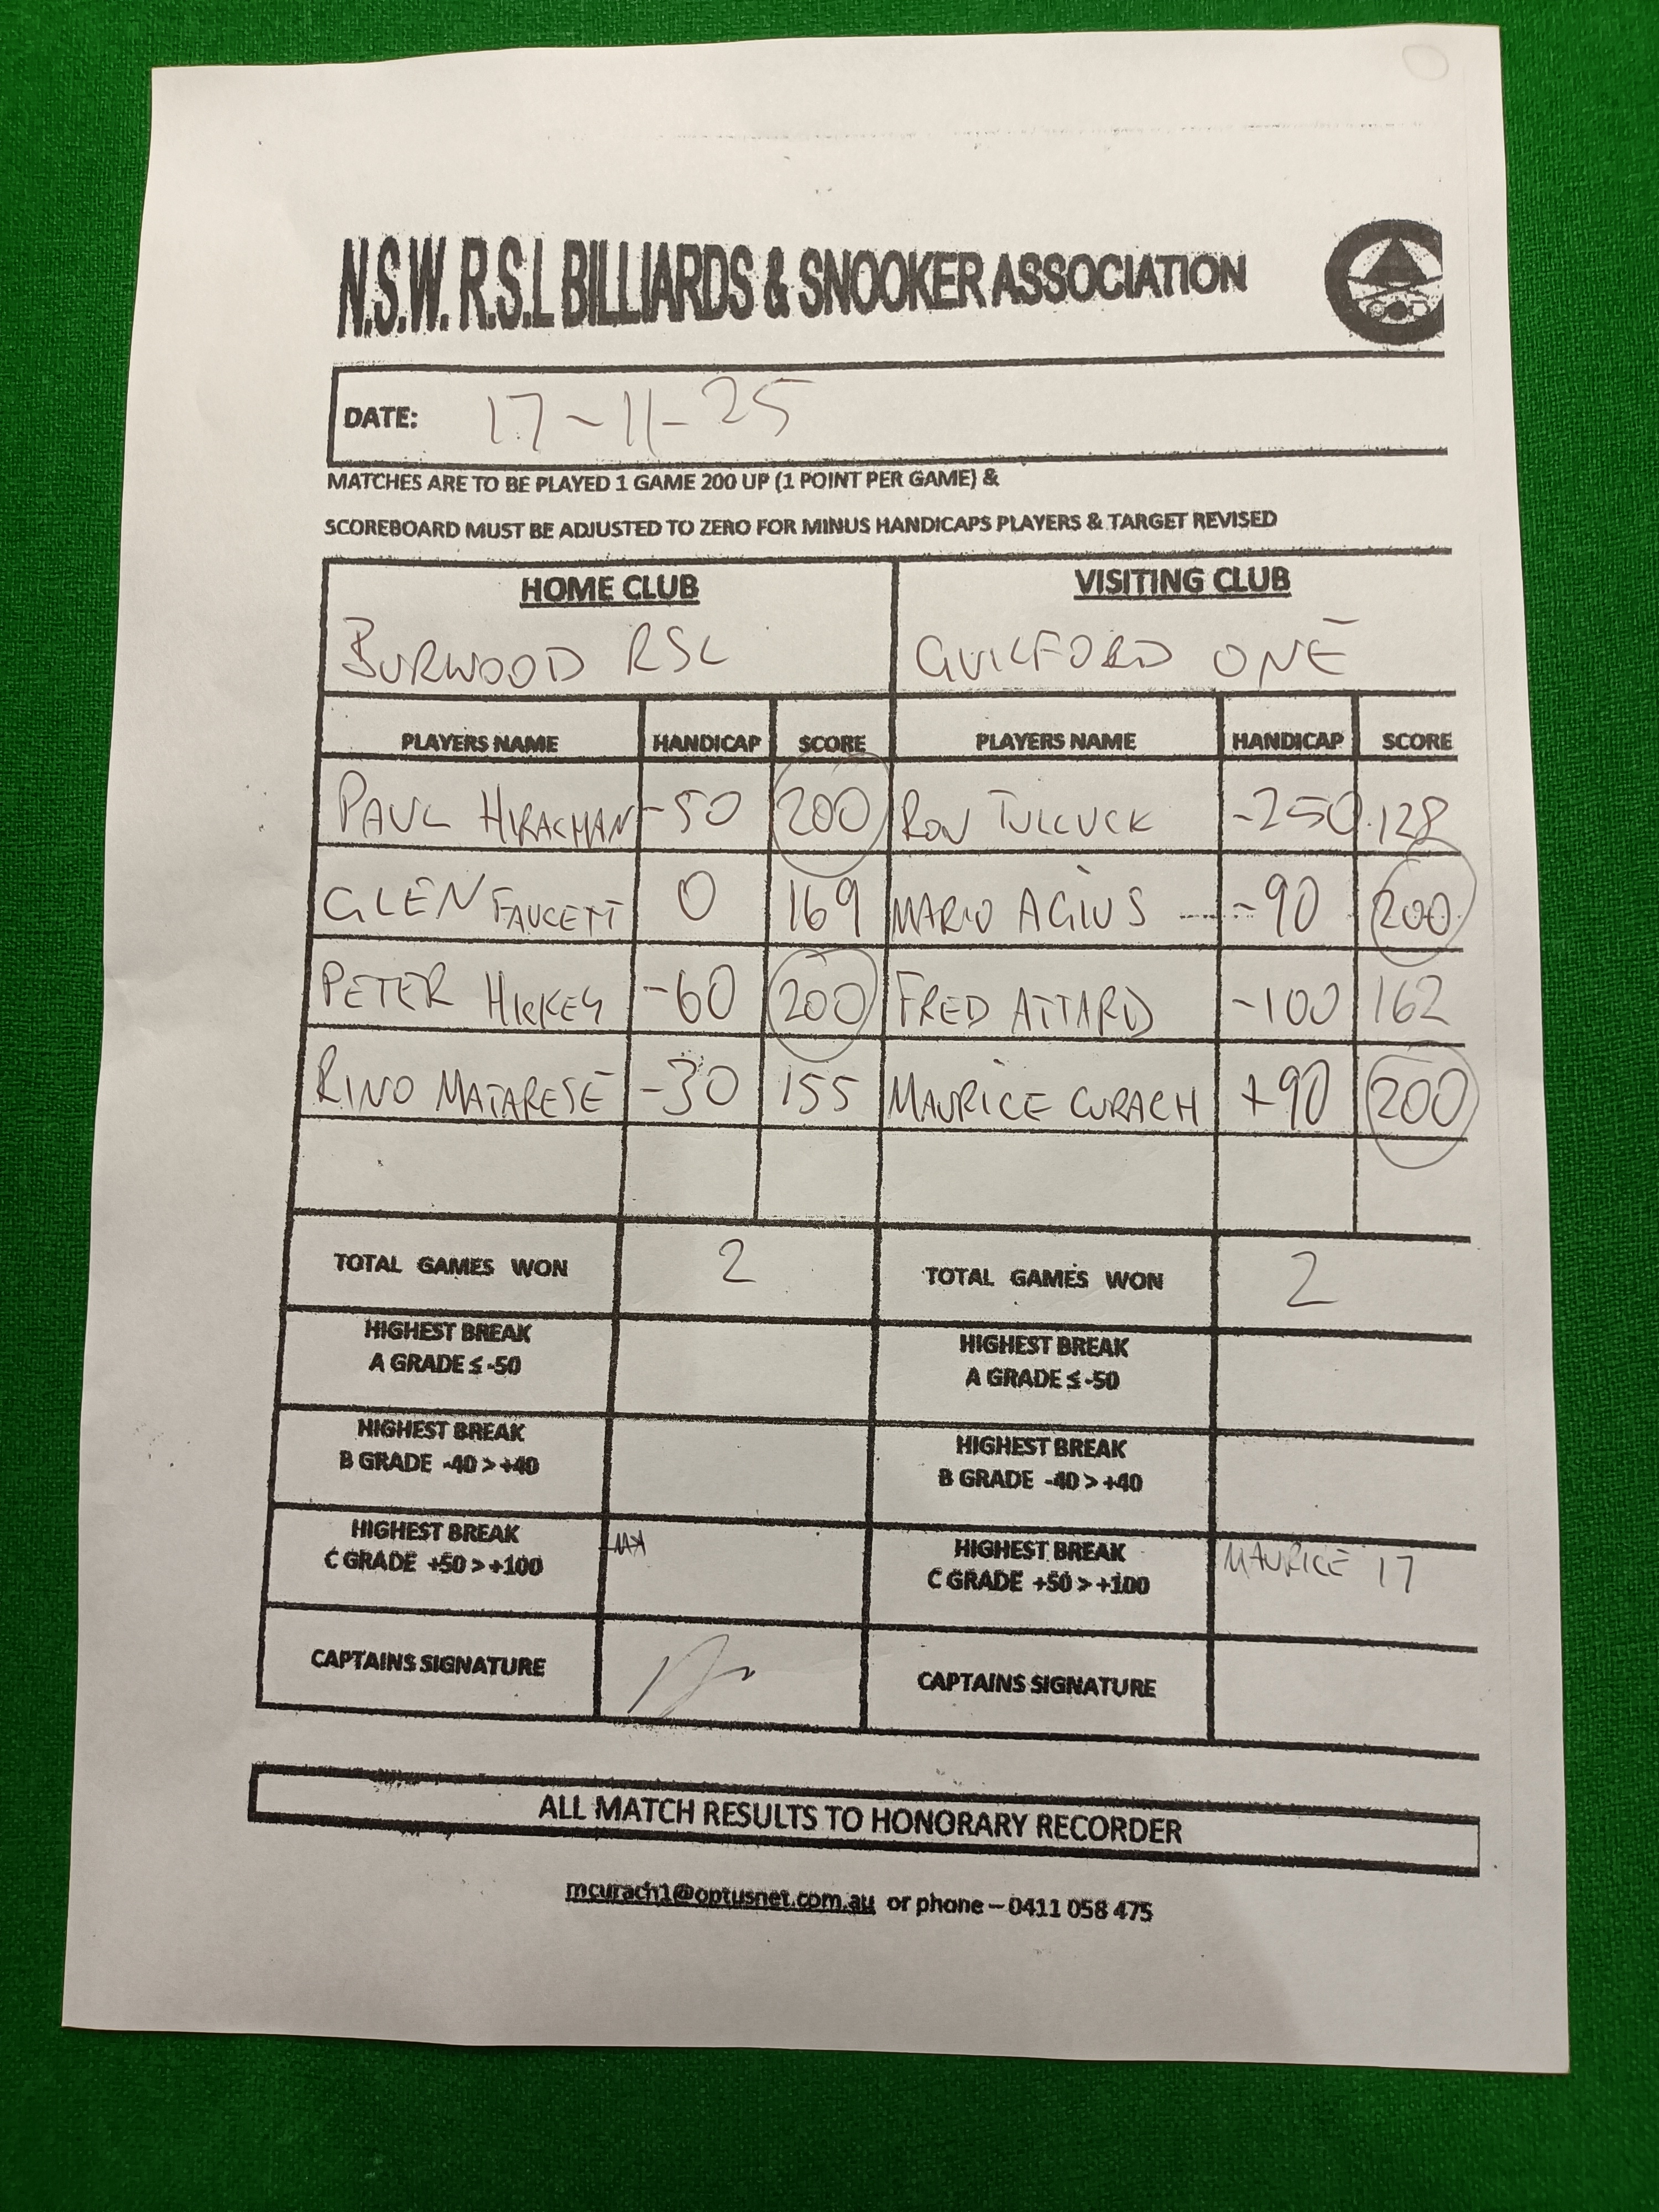 N.S.W. R.S.L BILLIARDS & SNOOKER ASSOCIATION
DATE: 17-11-25
MATCHES ARE TO BE PLAYED 1 GAME 200 UP (1 POINT PER GAME) &
SCOREBOARD MUST BE ADJUSTED TO ZERO FOR MINUS HANDICAPS PLAYERS & TARGET REVISED
HOME CLUB VISITING CLUB
BURWOOD RSL GUILFORD ONE
PLAYERS NAME HANDICAP SCORE PLAYERS NAME HANDICAP SCORE
PAUL -50 200 RON TULLUCK -250 128
GLEN FAUCETT 0 169 MARIO AGIUS -90 200
PETER HICKEY -60 200 FRED ATTARD -100 162
RINO MATARESE -30 155 MAURICE CURACH +90 200
TOTAL GAMES WON 2 TOTAL GAMES WON 2
HIGHEST BREAK HIGHEST BREAK
A GRADE ≤ -50 A GRADE ≤ -50
HIGHEST BREAK HIGHEST BREAK
B GRADE -40 > +40 B GRADE -40 > +40
HIGHEST BREAK HIGHEST BREAK
C GRADE +50 > +100 C GRADE +50 > +100 MAURICE 17
CAPTAINS SIGNATURE CAPTAINS SIGNATURE
ALL MATCH RESULTS TO HONORARY RECORDER
mcurach1@optusnet.com.au or phone – 0411 058 475